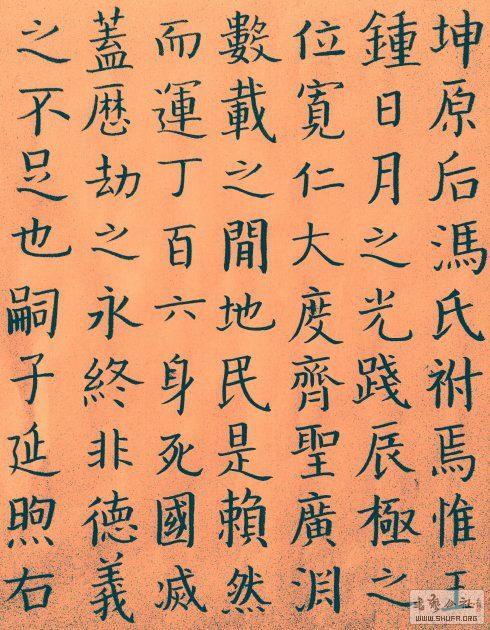 坤原后馮氏祔焉惟王
鍾日月之光踐辰極之
位寛仁大度齊聖廣渊
數載之閒地民是賴然
而運丁百六身死國滅
蓋暦劫之永終非德義
之不足也嗣子延煦右
书艺公社
WWW.SHUFA.ORG